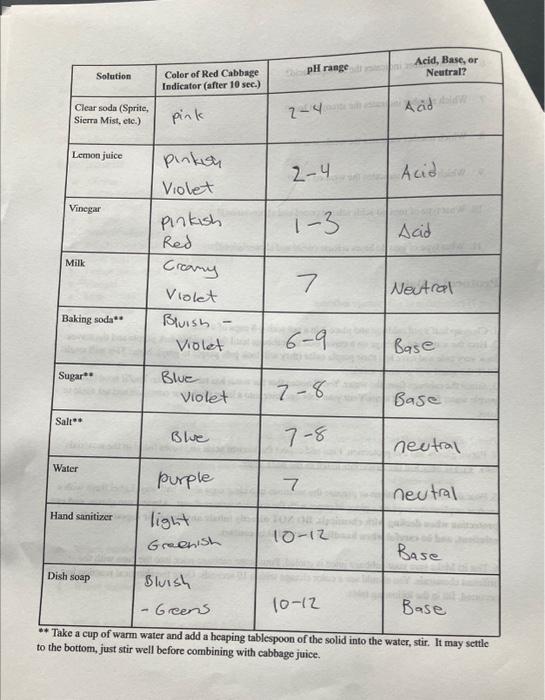 Solution
Color of Red Cabbage
Indicator (after 10 sec.)
pH range
Acid, Base, or
Neutral?
Clear soda (Sprite,
Sierra Mist, etc.)
pink
2-4
Acid
Lemon juice
pinkish
Violet
2-4
Acid
Vinegar
pinkish
Red
1-3
Acid
Milk
Creamy
Violet
7
Neutral
Baking soda**
Bluish -
Violet
6-9
Base
Sugar**
Blue
Violet
7-8
Base
Salt**
Blue
7-8
neutral
Water
purple
7
neutral
Hand sanitizer
light
Greenish
10-12
Base
Dish soap
Bluish
- Greens
10-12
Base
** Take a cup of warm water and add a heaping tablespoon of the solid into the water, stir. It may settle
to the bottom, just stir well before combining with cabbage juice.